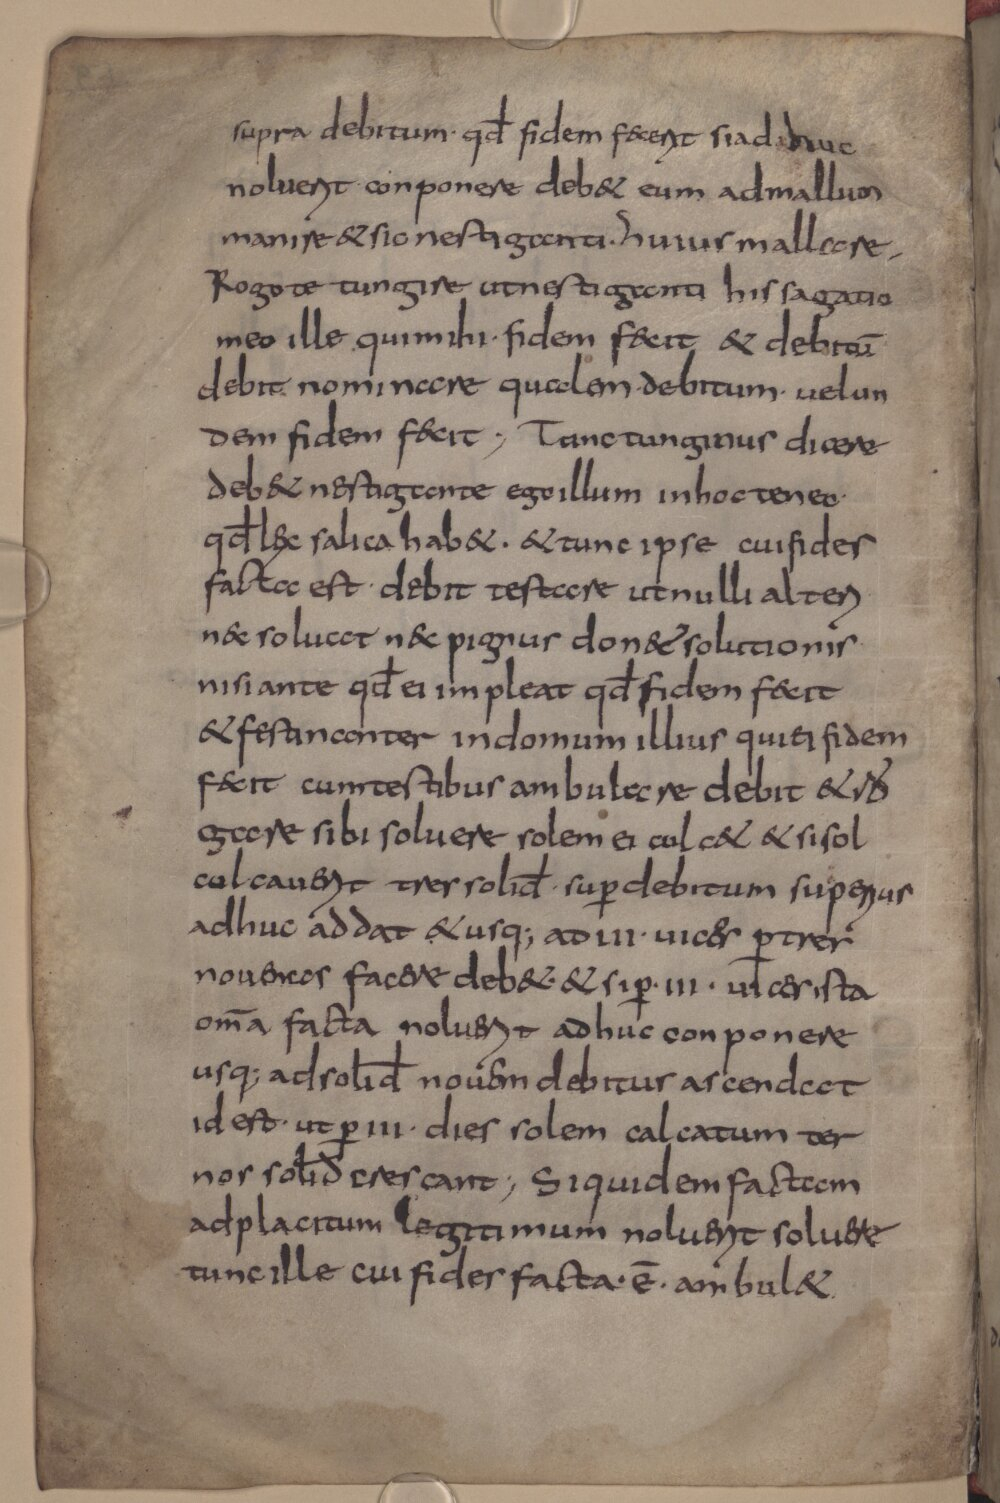 supra debitum· qđ fidem fecert siadhuc
noluert conponere deb& eum admallum
manire & sic nestiganti· huius mallare,
Rogo te tungire utnestiganti his sagatio
meo ille quimihi· fidem fecit & debitū
debit nominare qualem debitum· uel un
dem fidem fecit; Tunc tunginus dicere
deb& nestigante ego illum inhoc teneo·
qđ lex salica hab&· & tunc ipse cui fides
facta est· debit testare ut nulli alteri
nec soluat nec pignus don& solutionis
nisi ante qđ ei impleat qđ fidem fecit
& festinanter indomum illius qui ei fidem
fecit cum testibus ambulare debit & ro
gare sibi soluere solem ei culc& & si sol
culcauert tres soliđ· suꝑ debitum superius
adhuc addat & usq; ad III· uices ꝑ tres
nouenas facere deb& & si ꝑ· III· uices ista
om̄a facta noluert adhuc conponere
usq; ad soliđ nouem debitus ascendat
id est· ut ꝑ III· dies solem calcatum ter
nos soliđ crescant; Si quidem factam
ad placitum legitimum noluert soluere
tunc ille cui fides facta· ē· ambul&